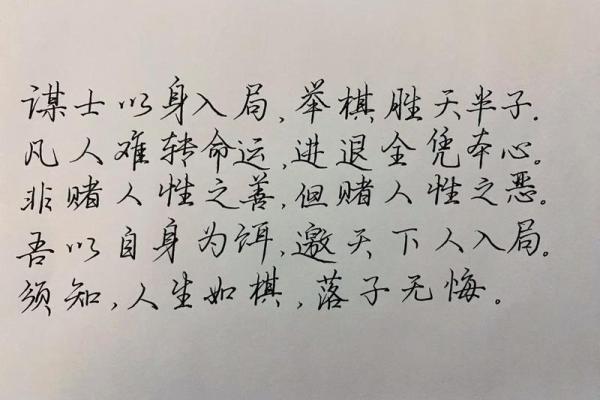 谋士以身入局,举棋胜天半子.
凡人难转命运,进退全凭本心。
非赌人性之善,但赌人性之恶。
吾以自身为饵,邀天下人入局。
须知,人生如棋,落子无悔。